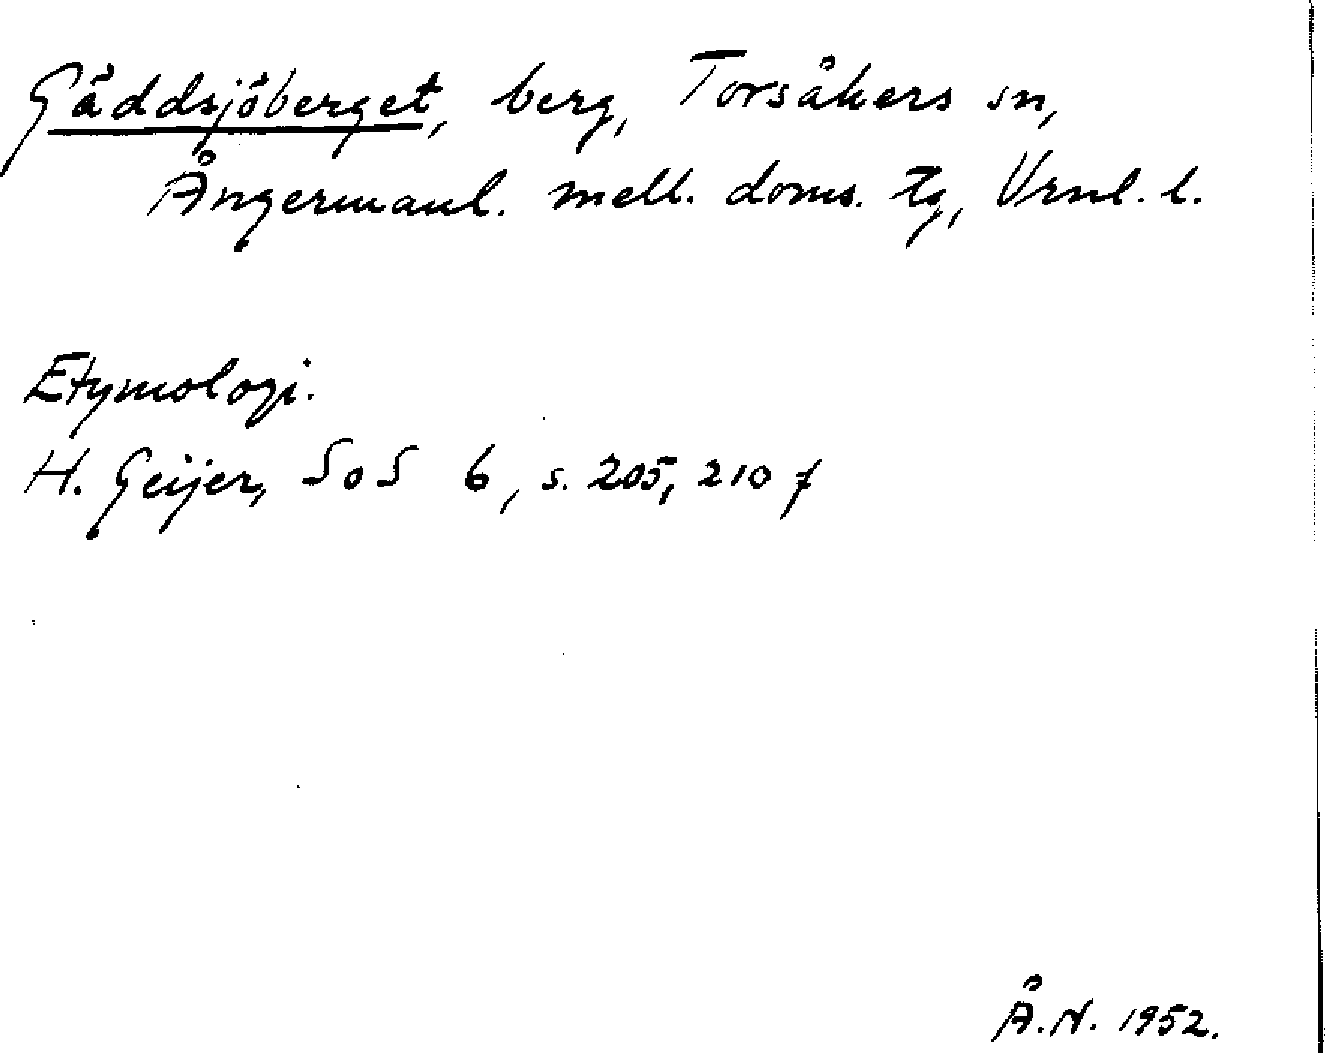 Gäddsjöberget, berg, Torsåkers sn,
Ångermanl. mell. doms. tg, Vrnl. l.
Etymologi.
H. Geijer, SoS 6, s. 205, 210 f
Å.N. 1952.